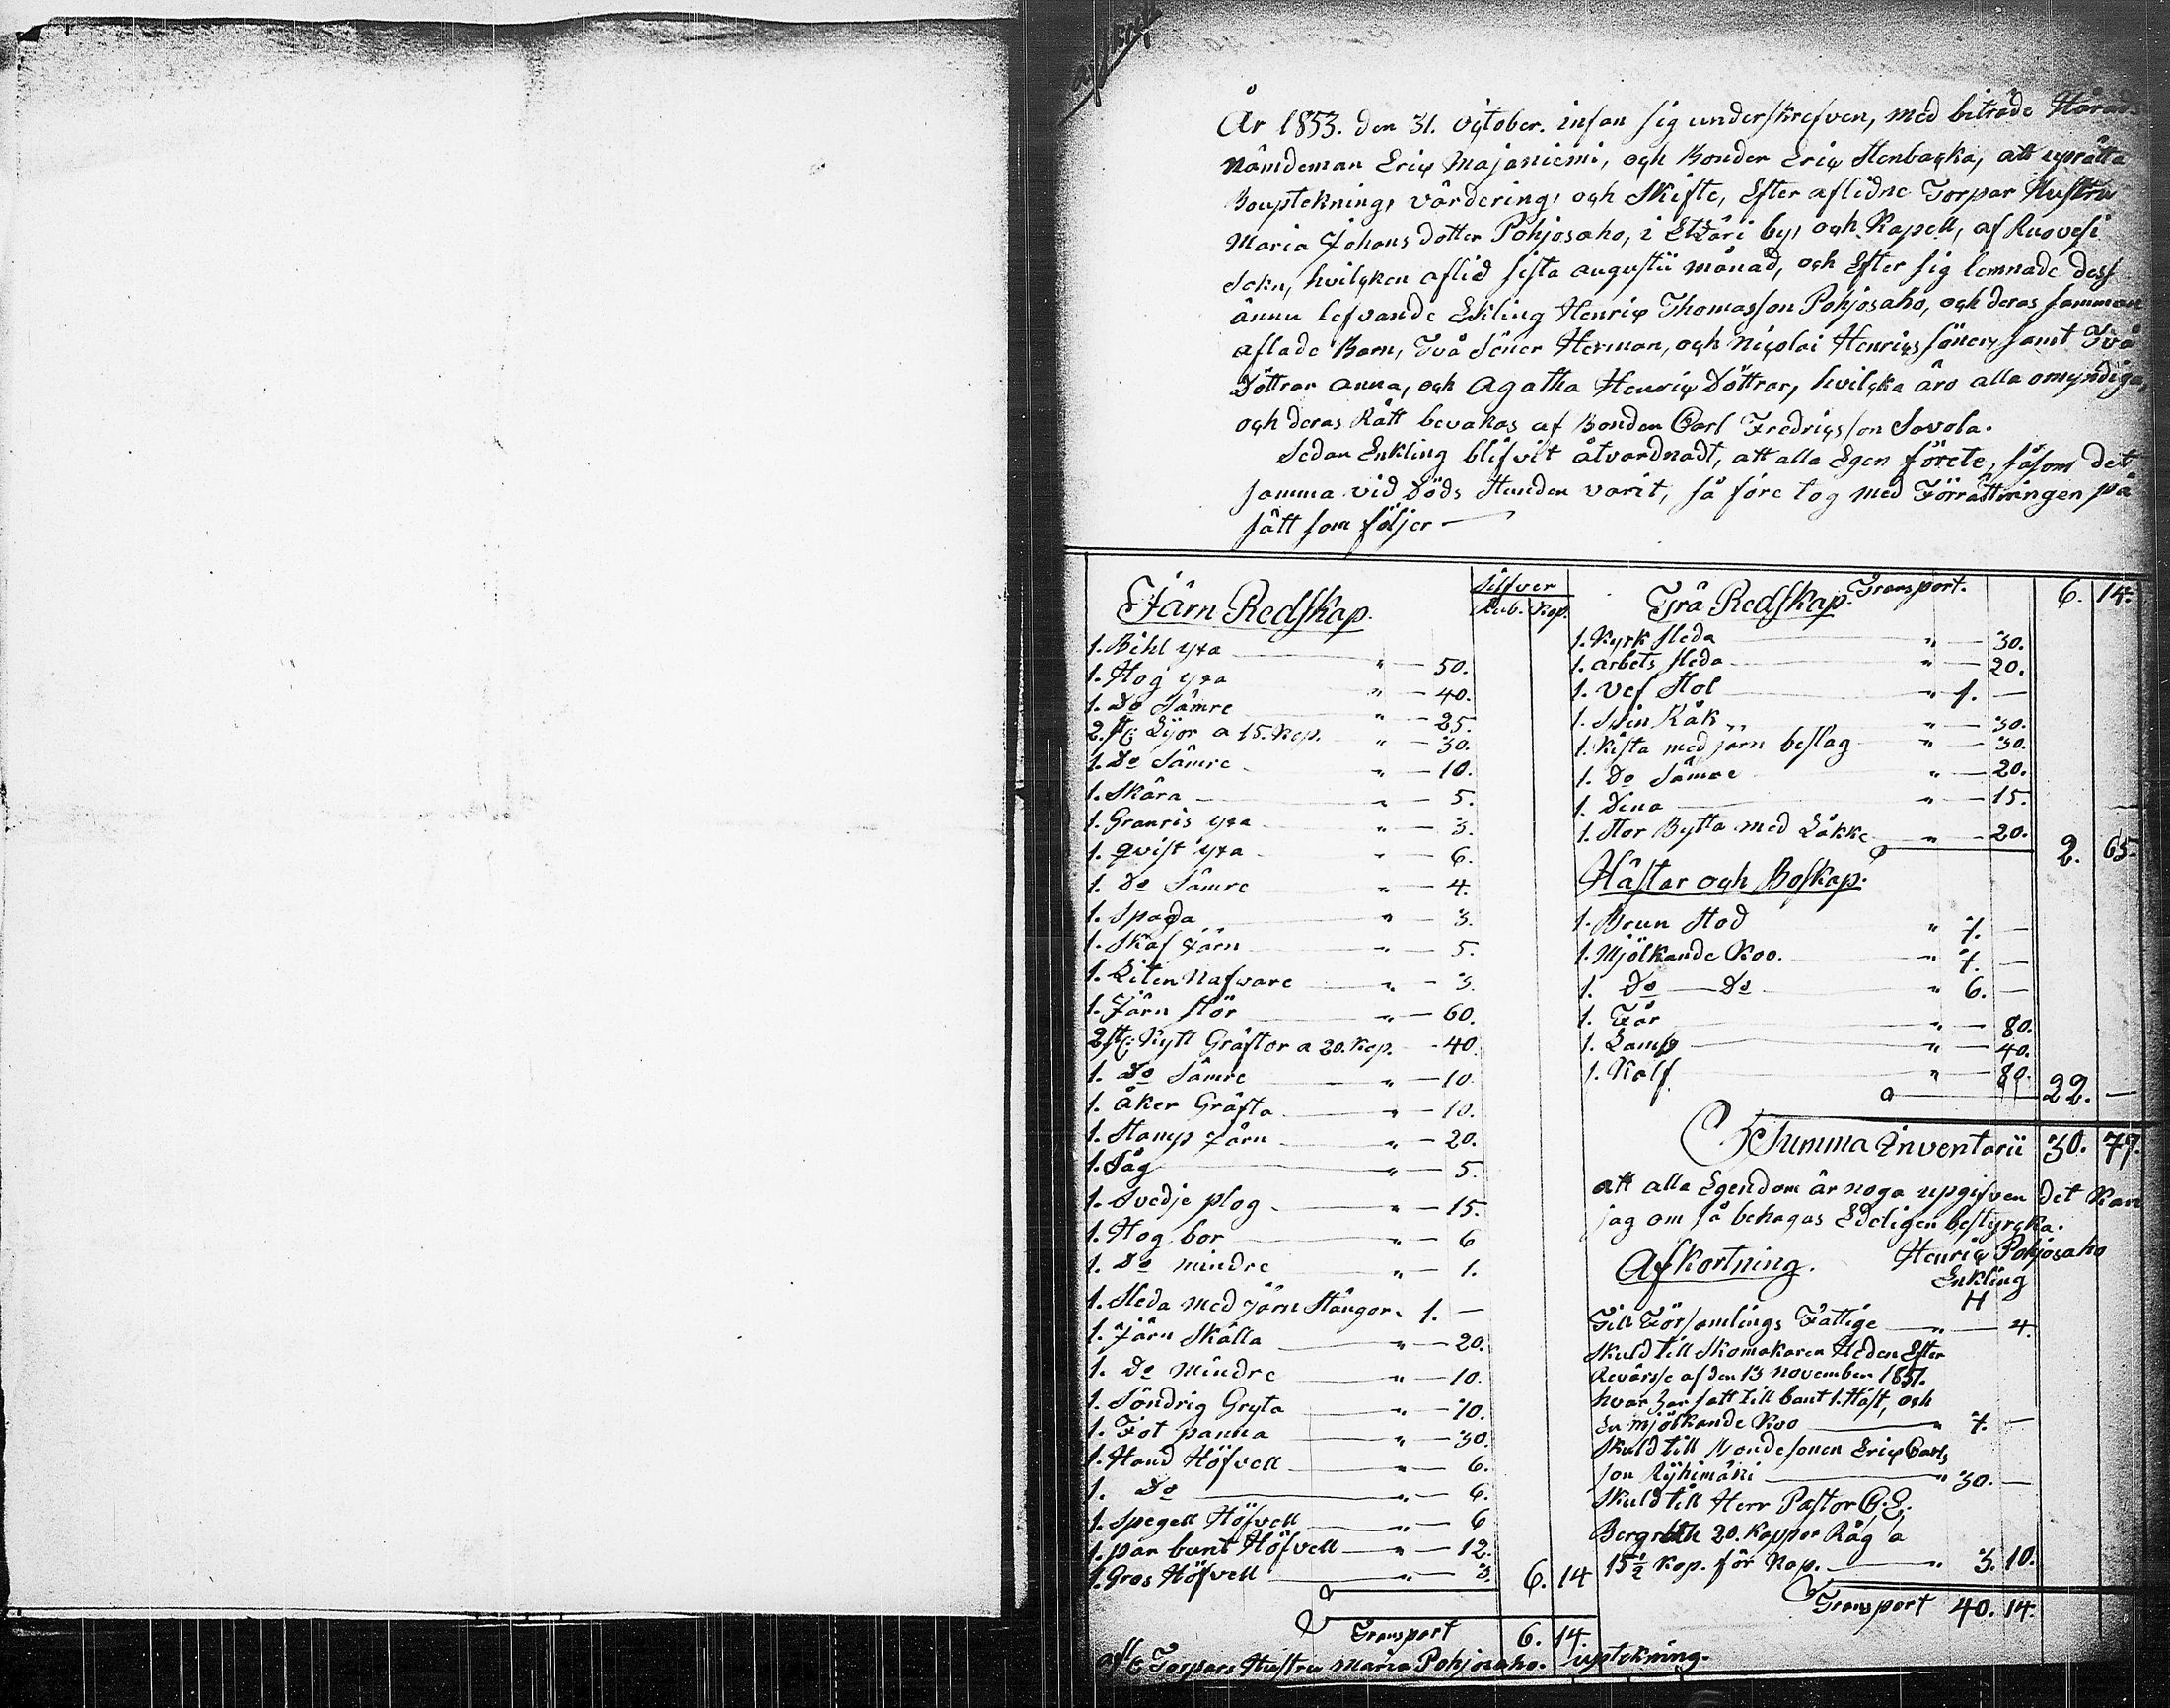 År 1853. den 31. October. infan sig underskrefven, med biträde Härads
Nämdeman Eric Majaniemi, och Bonden Eric Stenbacka, att uprätta
Bouptekning, värdering, och Skifte, Efter aflidne Torpar Hustru
Maria Johans dotter Pohjosaho, i Etzäri by, och Kapell, af Ruovesi
Sokn, hvilcken aflid sista augustii månad, och Efter sig lemnade dess
ännu lefvande Enkling Henric Thomasson Pohjosaho, och deras samman
aflade Barn, Två Söner Herman, och Nicolai Henrics söner, samt Två
Döttrar Anna, och Agatha Henric Döttrar, hvilcka äro alla omyndiga,
och deras Rätt bevakas af Bonden Carl Fredricsson Savola.
Sedan Enkling blifvit åtvardnadt, att alla Egen förete, såsom det
samma vid Döds Stunden varit, så före tog med Förrättningen på
sätt som följer
Järn Redskap.
Silfver
Rub. Kop.
1. Bihl yxa " 50.
1. Hog yxa " 40.
1. Do Sämre " 25.
2. st: Lijor a 15. Kop. " 30.
1. Do Sämre " 10.
1. Skära " 5.
1. Granris yxa " 3.
1. qvist yxa " 6.
1. Do Sämre " 4.
1. Spada " 3.
1. Skaf Järn " 5.
1. Liten Nafware " 3.
1. Järn stör " 60.
2. st: Kytt Gräftor a 20. Kop. 40.
1. Do Sämre " 10.
1. åker Gräfta " 10.
1. Stamp Järn " 20.
1. Såg " 5.
1. Svedje plog " 15.
1. Hog bor " 6
1. Do mindre " 1.
1. Sleda med Järn Stänger. 1. —
1. Järn Skälla " 20.
1. Do Mindre " 10.
1. Söndrig Gryta " 10.
1. Fot panna " 30.
1. Hand Höfvell " 6.
1. Do " 6.
1. Spegell Höfvell " 6
1. par bunt Höfvell " 12.
1. Gros Höfvell " 3. 6. 14
Transport 6. 14.
Trä Redskap. Transport. 6. 14.
1. Kyrk sleda " 30.
1. arbets sleda " 20.
1. Vef Stol " 1. —
1. Spin Råk " 30.
1. Kista med järn beslag " 30.
1. Do Sämre " 20.
1. Dina " 15.
1. Stor Bytta med Låkke " 20. 2. 65.
Hästar och Boskap.
1. Brun Stod " 7. —
1. Mjölkande Koo. " 7. —
1. Do Do " 6. —
1. Får " 80.
1. Lamb " 40.
1. Kalf " 80. 22. —
Summa Inventarii 30. 77.
att alla Egendom är noga upgifven det Kan
jag om så behagas Edeligen bestyrcka.
Henric Pohjosaho
Enkling
H
Afkortning.
Till Församlings Fattige " 4.
Skuld till Skomakaren Heden Efter
Revärsse af den 13 november 1851.
hvar har satt till bant 1. Häst, och
En mjölkande Koo " 7. —
Skuld till Bondesonen Eric Carls
son Ryhimäki " 30. —
Skuld till Herr Pastor C. E.
Bergroth 20. Kappor Råg a
15 1/2 Kop. för Kap. " 3. 10.
Transport 40. 14.
Torpars Hustru Maria Pohjosaho. uptekning.